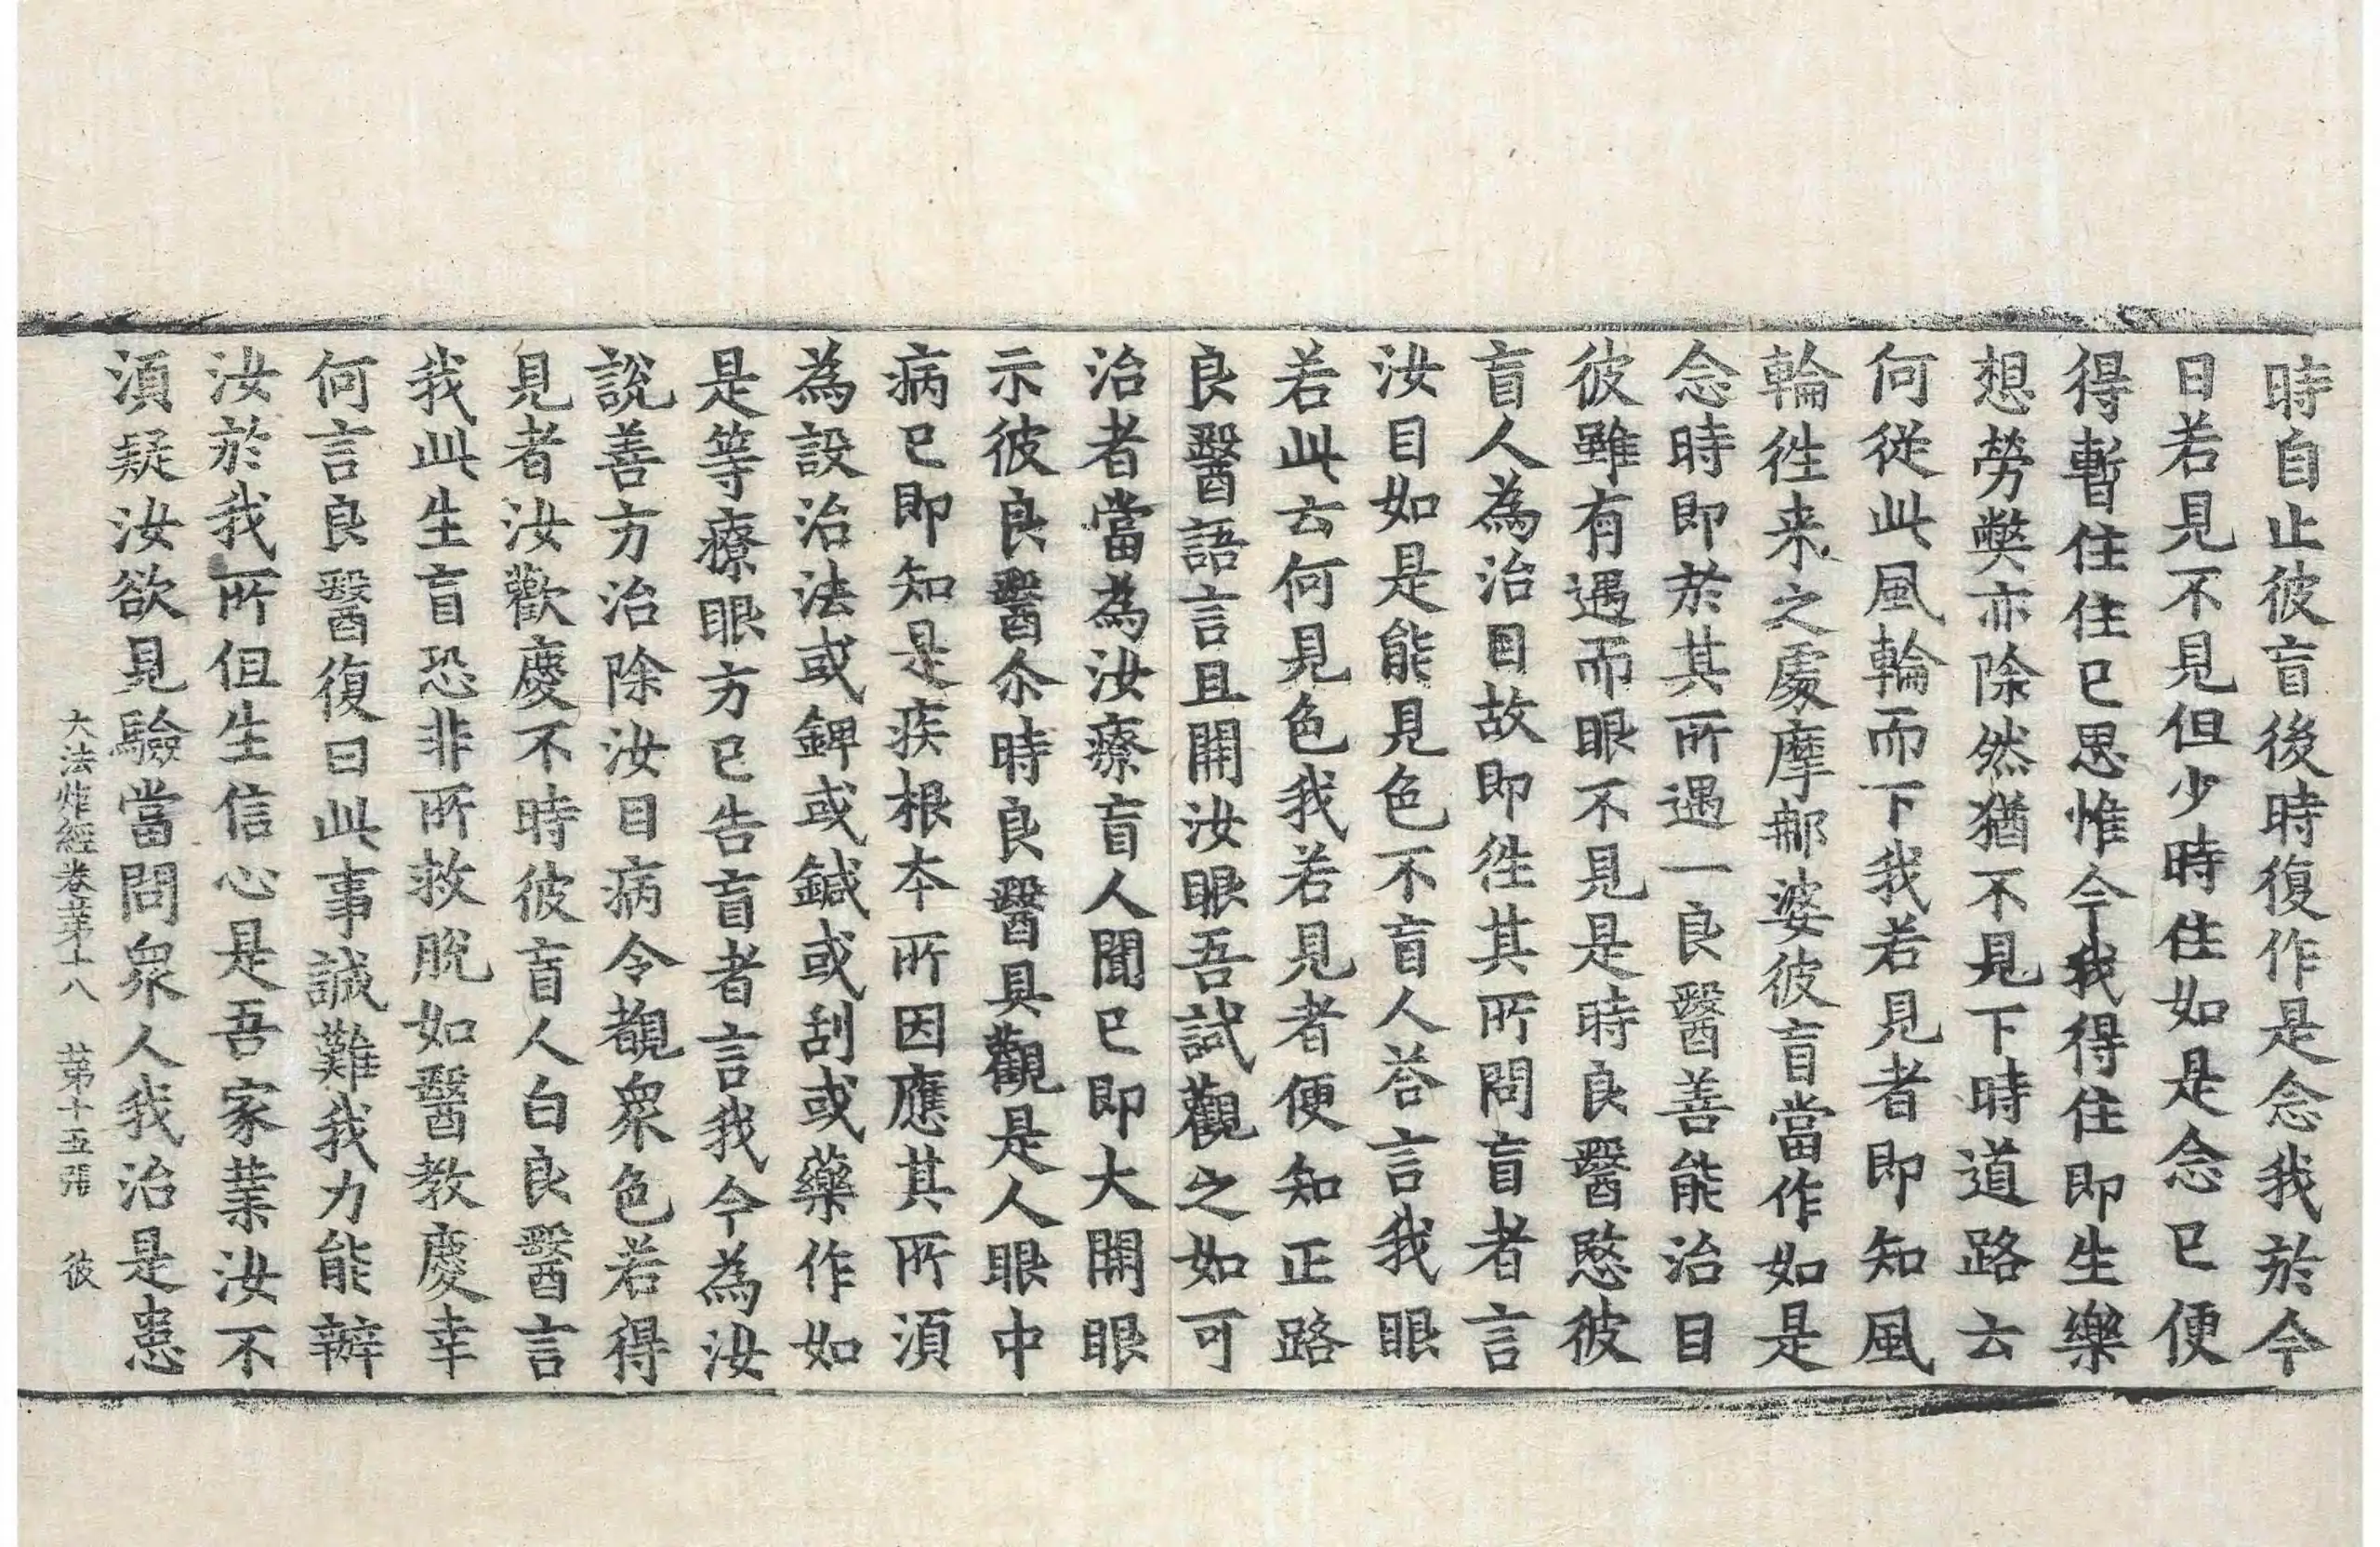 時自止彼盲後時復作是念我於今
日若見不見但少時住如是念已便
得暫住住已思惟今我得住即生樂
想勞弊亦除然猶不見下時道路云
何從此風輪而下我若見者即知風
輪徃来之處摩鄦婆彼盲當作如是
念時即於其所遇一良醫善能治目
彼雖有遇而眼不見是時良醫愍彼
盲人為治目故即徃其所問盲者言
汝目如是能見色不盲人荅言我眼
若此云何見色我若見者便知正路
良醫語言且開汝眼吾試觀之如可
治者當為汝療盲人聞已即大開眼
示彼良醫尒時良醫具觀是人眼中
病已即知是疾根本所因應其所須
為設治法或錍或鍼或刮或藥作如
是等療眼方已告盲者言我今為汝
說善方治除汝目病令覩衆色若得
見者汝歡慶不時彼盲人白良醫言
我此生盲恐非所救脫如醫教慶幸
何言良醫復曰此事誠難我力能辦
汝於我所但生信心是吾家業汝不
須疑汝欲見驗當問衆人我治是患
大法炬經卷第十八　第十五張　彼